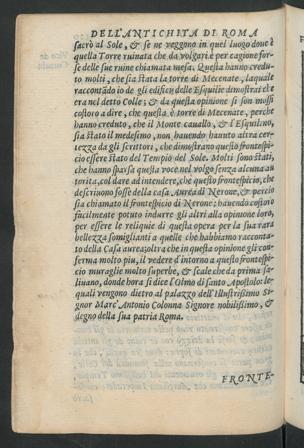 DELL'ANTICHITA DI ROMA
sacrò al Sole, & se ne veggono in quel luogo doue è
quella Torre ruinata che da volgari è per cagione for-
se delle sue ruine chiamata mesa. Questa hanno credu-
to molti, che sia stata la torre di Mecenate, laquale
raccontādo io de gli edificij delle Esquilie dimostrai che
era nel detto Colle; & da questa opinione si son mossi
costoro a dire, che questa è torre di Mecenate, perche
hanno creduto, che il Monte cauallo, & l'Esquilino,
sia stato il medesimo, non hauendo hauuto altra cer-
tezza da gli scrittori, che dimostrano questo frontespi-
cio essere stato del Tempio del Sole. Molti sono stati,
che hanno sparsa questa voce nel volgo senza alcuna au
torità, col dare ad intendere, che questo frontespicio, che
descriuono fosse della casa Aurea di Nerone, & perciò
sia chiamato il frontespicio di Nerone; hauendo costoro
facilmente potuto indurre gli altri alla opinione loro,
per essere le reliquie di questa opera per la sua rara
bellezza somiglianti a quelle che habbiamo raccontа-
to della Casa aurea; oltra che in questa opinione gli con-
ferma molto piu, il vedere d'intorno a questo frontespi-
cio muraglie molto superbe, & scale che da prima sa-
liuano, donde hora si dice l'Olmo di santo Apostolo: le-
quali vengono dietro al palazzo dell'Illustrissimo Si-
gnor Marc'Antonio Colonna Signore nobilissimo, &
degno della sua patria Roma.
FRONTE-